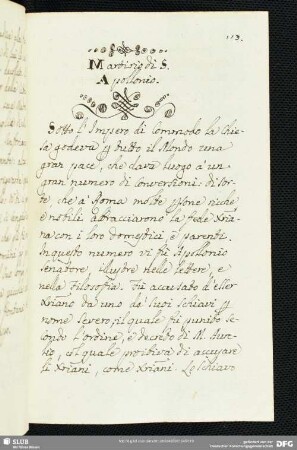 113.
Martirio di S.
Apollonio.
Sotto l'Impero di Commodo la Chie-
sa godeva p tutto il Mondo una
gran pace, che dava luogo à un
gran numero di Conversioni: di sor-
te, che à Roma molte psone ricche,
e nobili abbracciarono la fede Xria-
na con i loro domestici e parenti.
In questo numero vi fù Apollonio
Senatore, illustre nelle lettere, e
nella Filosofia. Fù accusato d'esser
Xriano da uno de suoi Schiavi p
nome Severo, il quale fù punito se-
condo l'ordine, e decreto di M. Aure-
lio, col quale proibiva di accusare
li Xriani, come Xriani. Lo Schiavo
SLUB
Wir führen Wissen.
DFG